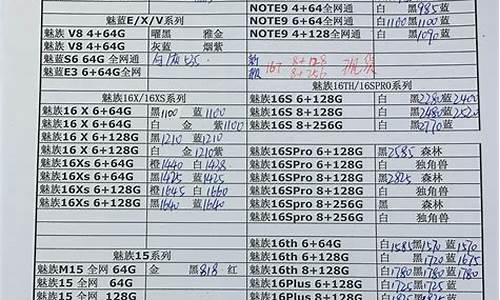 NOTE9 4+64全网通 白 黑985蓝
魅蓝E/X/V系列 NOTE9 6+64全网通 白1100黑1100蓝
魅族 V8 4+64G 曜黑 雅金 NOTE9 4+128全网通 白 黑1090蓝
魅族 V8 4+64G 灰蓝 烟紫
魅蓝S6 64G 全网通 16T 8+128
魅蓝E3 6+64G全网通 8+256
魅族16X/16XS系列 魅族16TH/16SPRO系列
魅族16 X 6+64G 黑1100 蓝1100 魅族16S 6+128G 白 黑2280蓝2400
魅族16 X 6+64G 白 金 紫1100 魅族16S 8+128G 白 黑2480蓝2520
魅族16 X 6+128G 黑1210 蓝1210 魅族16S 8+256G 白 黑2770蓝
魅族16 X 6+128G 白 金1210紫
魅族16Xs 6+64G 橙1440 白1428 魅族16SPro 6+128G 黑2585 森林
魅族16Xs 6+64G 黑1425 蓝1425 魅族16SPro 6+128G 白 独角兽
魅族16Xs 6+128G 橙1645 白1660 魅族16SPro 8+128G 黑2825 森林
魅族16Xs 6+128G 黑1640 蓝1640 魅族16SPro 8+128G 白 独角兽
魅族16SPro 8+256G 黑 森林
魅族16SPro 8+256G 白 独角兽
魅族15系列 魅族16th 6+64G 白1585黑1570蓝1570
魅族M15 全网 64G 金 黑818 红 魅族16th 6+128G 白 黑1720蓝1675
魅族15 全网 64G 魅族16th 8+128G 白1780黑1780蓝1780
魅族15 全网 128G 魅族16Plus 6+128G 白1725黑1725蓝
魅族16Plus 8+128G